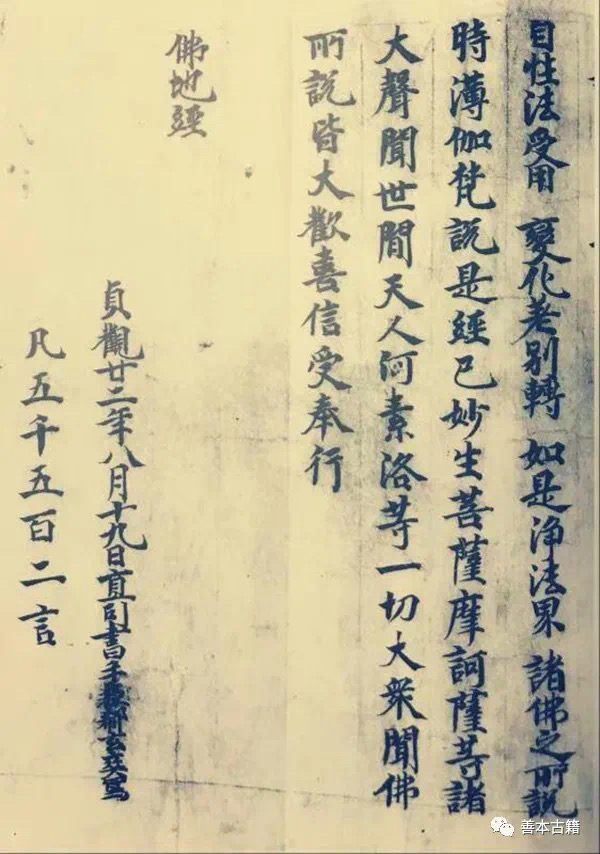 自性法受用 變化差別轉 如是淨法界 諸佛之所說
時薄伽梵說是經已妙生菩薩摩訶薩等諸
大聲聞世間天人阿素洛等一切大眾聞佛
所說皆大歡喜信受奉行
佛地經
貞觀廿二年八月十九日直司書手郗玄爽寫
凡五千五百二言
善本古籍